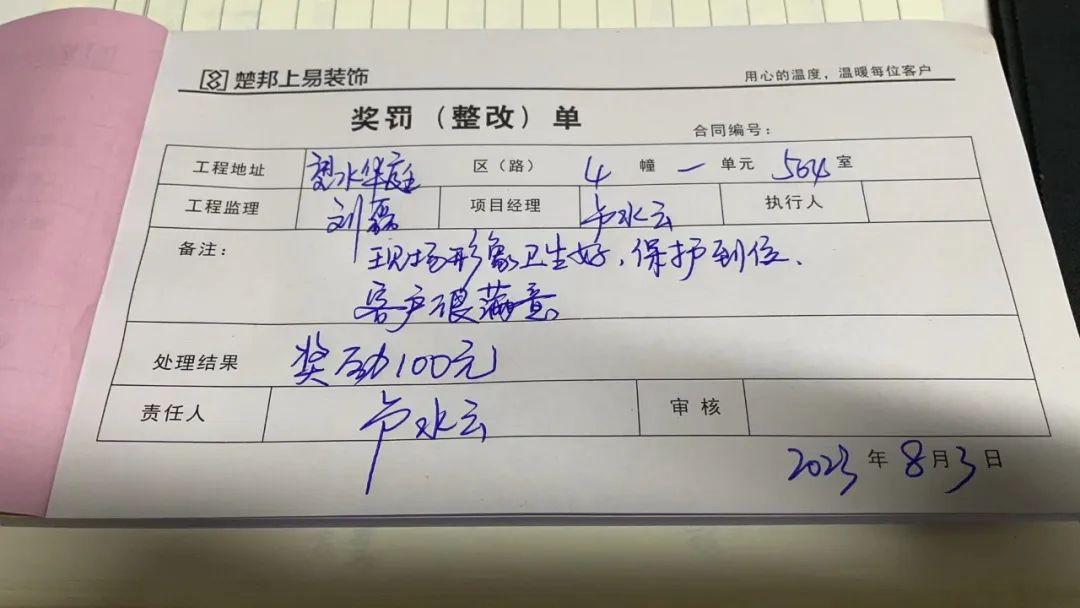 楚邦上易装饰 用心的温度，温暖每位客户
奖罚（整改）单
合同编号：
工程地址 水华庭 区（路） 4 幢 一 单元 504 室
工程监理 刘磊 项目经理 水云 执行人
备注： 现场形象卫生好，保护到位、
客户很满意
处理结果 奖励100元
责任人 水云 审核
2023年8月3日